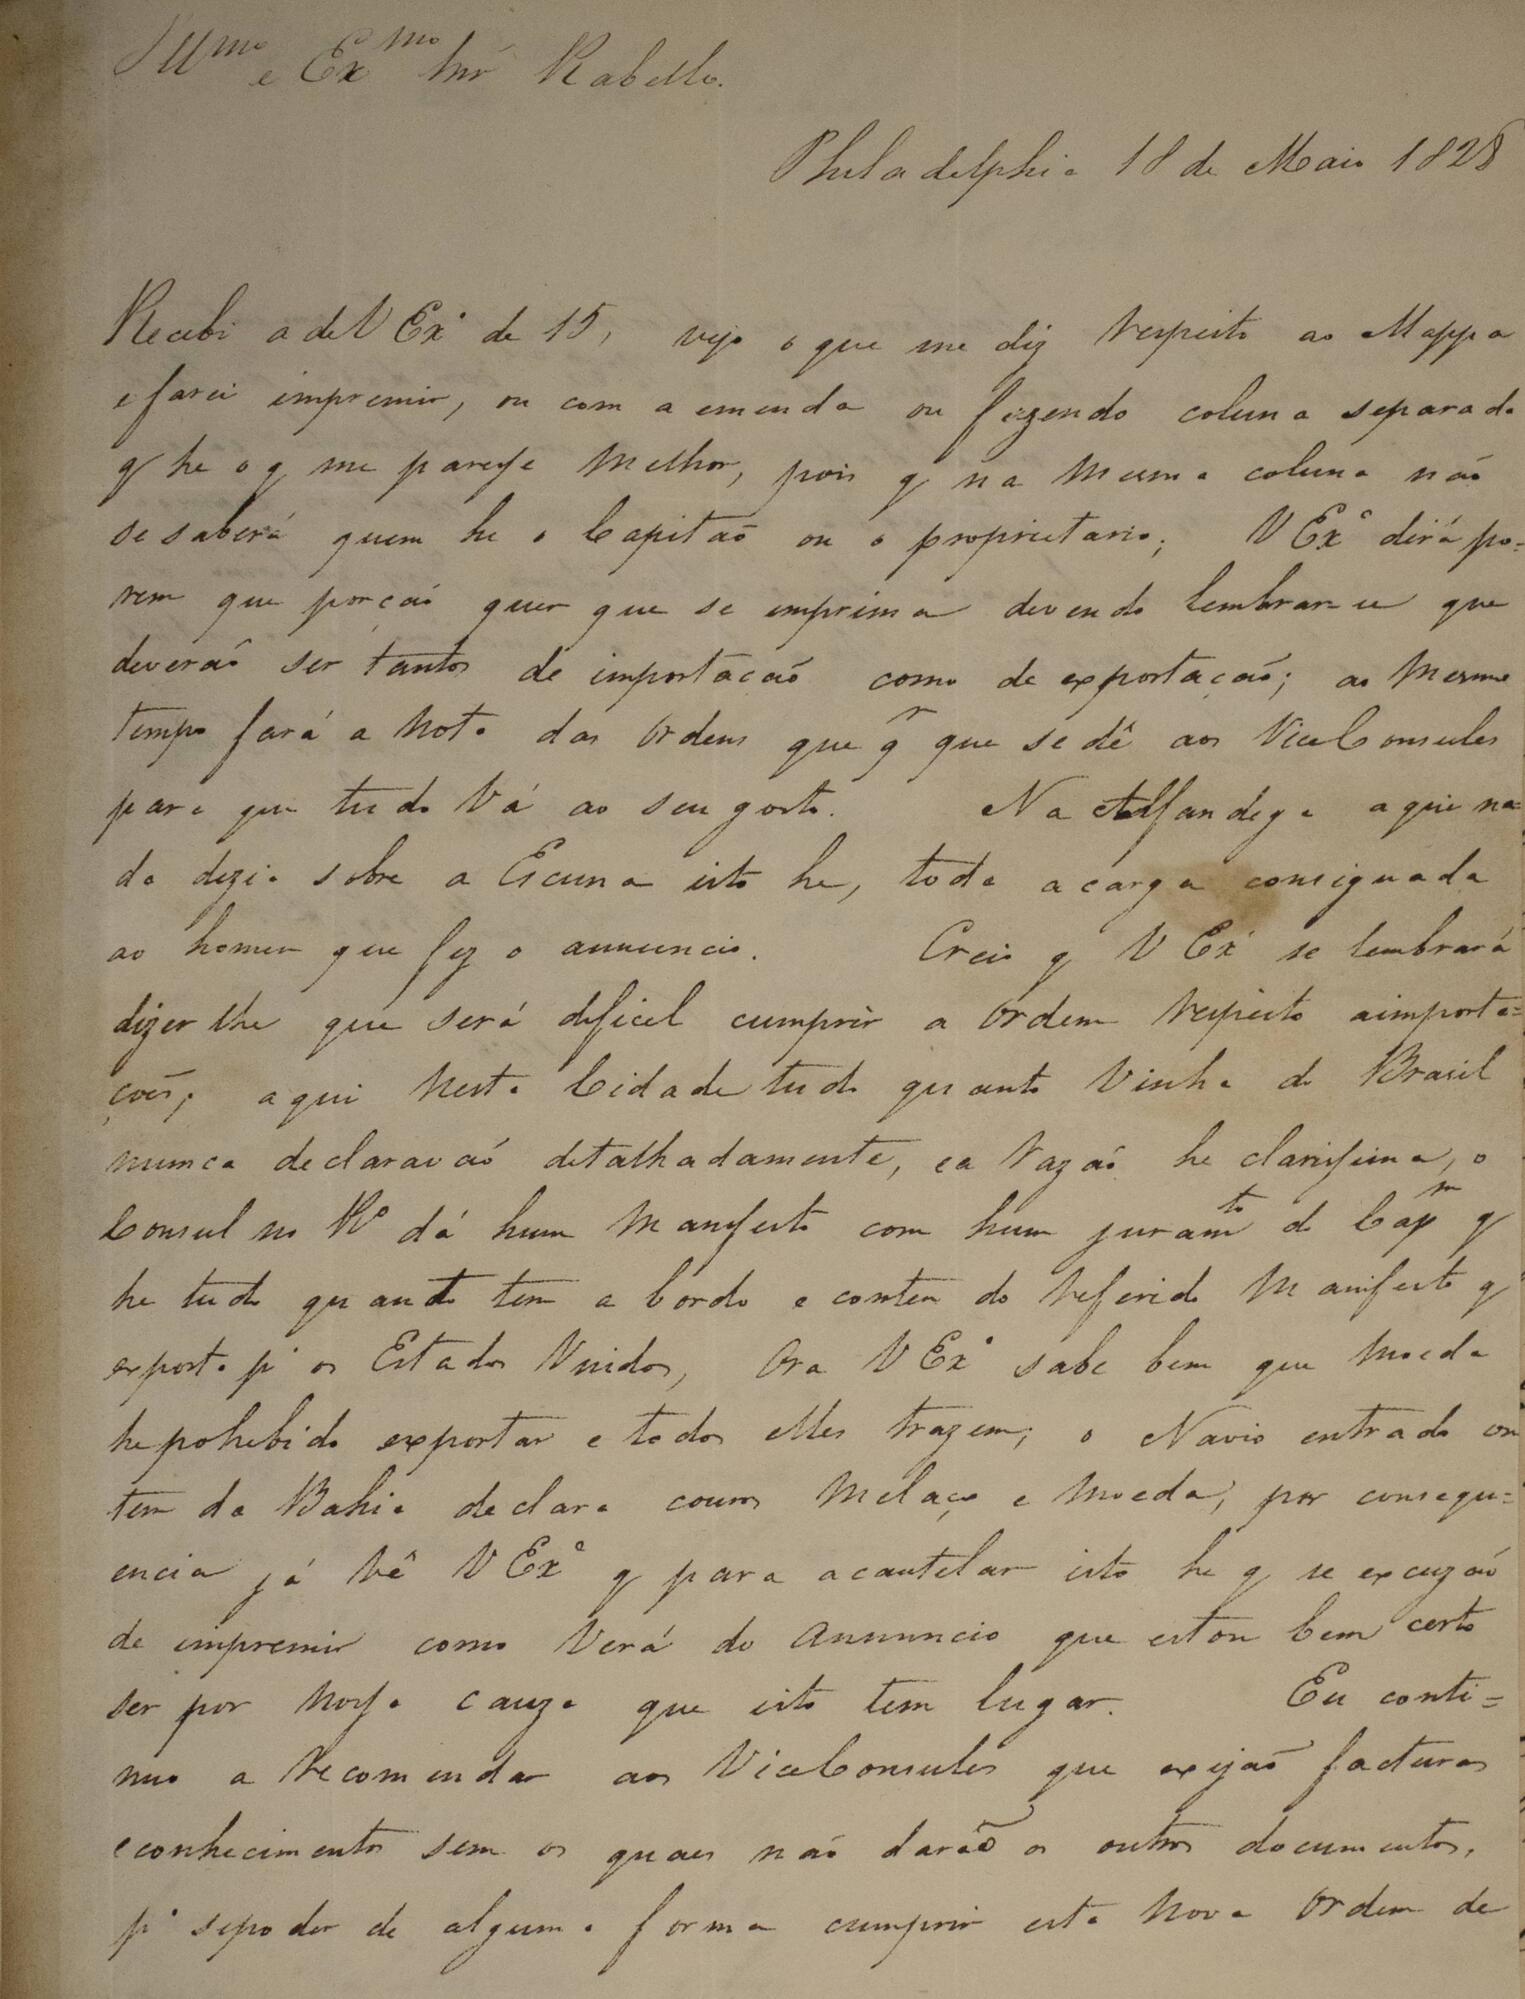 Illmo e Exmo Snr Rabello.
Philadelphia 18 de Maio 1828
Recebi a de V Exa de 15, vejo o que me diz respeito ao Mappa
e farei impremir, ou com a emenda ou fazendo coluna separada
q he o q me paresse melhor, pois q na mesma coluna não
se saberá quem he o Capitaõ ou o proprietario; V Exa dirá po=
rem que porçaõ quer que se emprima devendo lembrarse que
deveraõ ser tantos de importaçaõ como de exportaçaõ; ao mesmo
tempo fará a Nota das Ordens que qr que se dê aos Vice Consules
para que tudo vá ao seu gosto. Na Alfandega aqui na=
da dezia sobre a Escuna isto he, toda a carga consignada
ao homem que fez o annuncio. Creio q V Exa se lembrará
dizer lhe que será deficel cumprir a Ordem respeito a importa=
çoẽs, aqui nesta Cidade tudo quanto vinha do Brasil
nunca declaravaõ detalhadamente, e a razaõ he clarissima, o
Consul no Ro dá hum Manifesto com hum juramto do Capm q
he tudo quanto tem a bordo e contem do referido Manifesto q
exporta pa os Estados Vnidos, Ora V Exa sabe bem que moeda
he pohebido exportar e todos elles trazem; o Navio entrado on
tem da Bahia declara couros Melaço e moeda, por consequ=
encia já vê V Exa q para acautelar isto he q se excuzaõ
de impremir como verá do Annuncio que estou bem certo
ser por nossa cauza que isto tem lugar. Eu conti=
nuo a recomendar aos Vice Consules que exijaõ facturas
e conhecimentos sem os quaes naõ daraõ os outros documentos,
pa se poder de alguma forma cumprir esta nova Ordem de